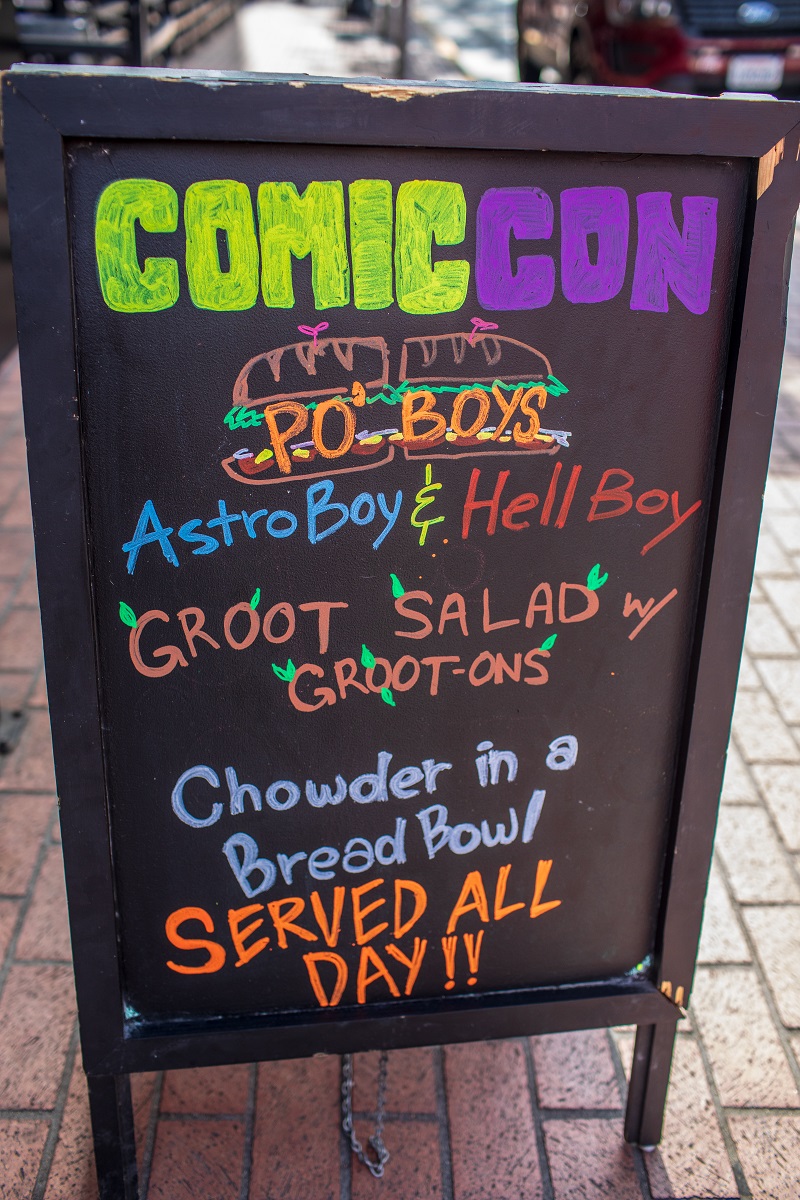 COMIC CON
PO' BOYS
Astro Boy & Hell Boy
GROOT SALAD w/
GROOT-ONS
Chowder in a
Bread Bowl
SERVED ALL
DAY!!